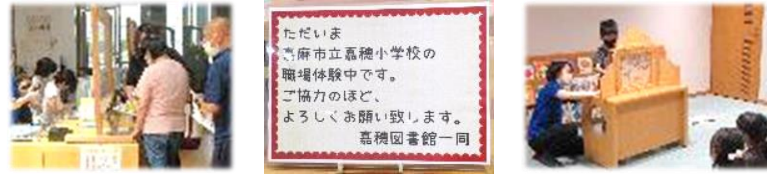 ただいま
嘉麻市立嘉穂小学校の
職場体験中です。
ご協力のほど、
よろしくお願い致します。
嘉穂図書館一同